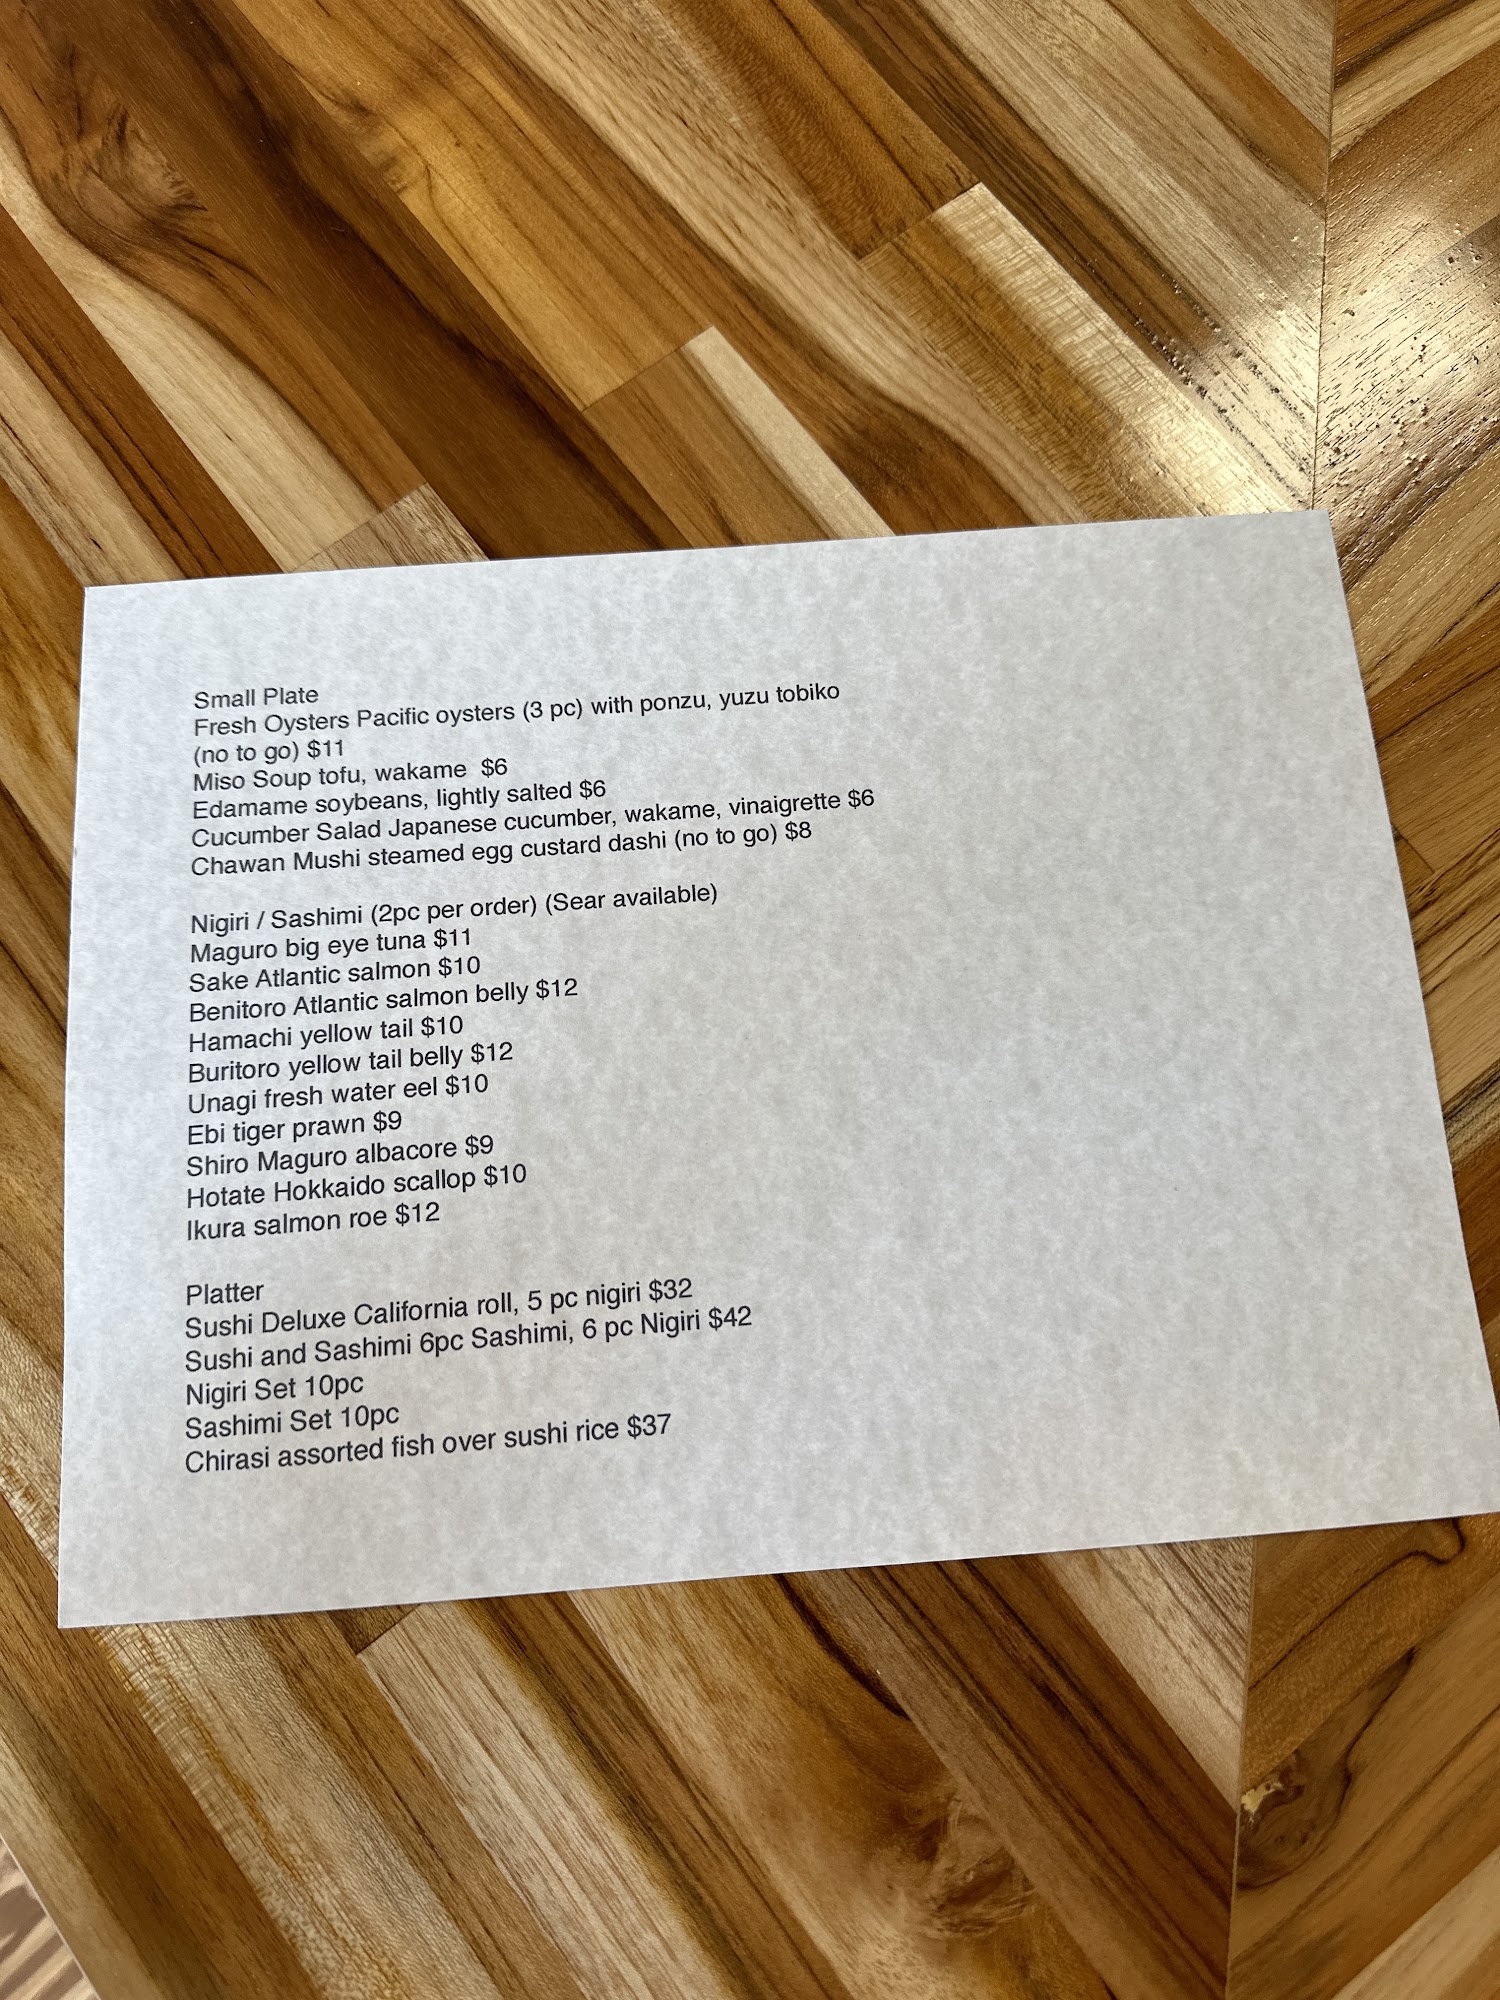 Small Plate
Fresh Oysters Pacific oysters (3 pc) with ponzu, yuzu tobiko
(no to go) $11
Miso Soup tofu, wakame  $6
Edamame soybeans, lightly salted $6
Cucumber Salad Japanese cucumber, wakame, vinaigrette $6
Chawan Mushi steamed egg custard dashi (no to go) $8
Nigiri / Sashimi (2pc per order) (Sear available)
Maguro big eye tuna $11
Sake Atlantic salmon $10
Benitoro Atlantic salmon belly $12
Hamachi yellow tail $10
Buritoro yellow tail belly $12
Unagi fresh water eel $10
Ebi tiger prawn $9
Shiro Maguro albacore $9
Hotate Hokkaido scallop $10
Ikura salmon roe $12
Platter
Sushi Deluxe California roll, 5 pc nigiri $32
Sushi and Sashimi 6pc Sashimi, 6 pc Nigiri $42
Nigiri Set 10pc
Sashimi Set 10pc
Chirasi assorted fish over sushi rice $37